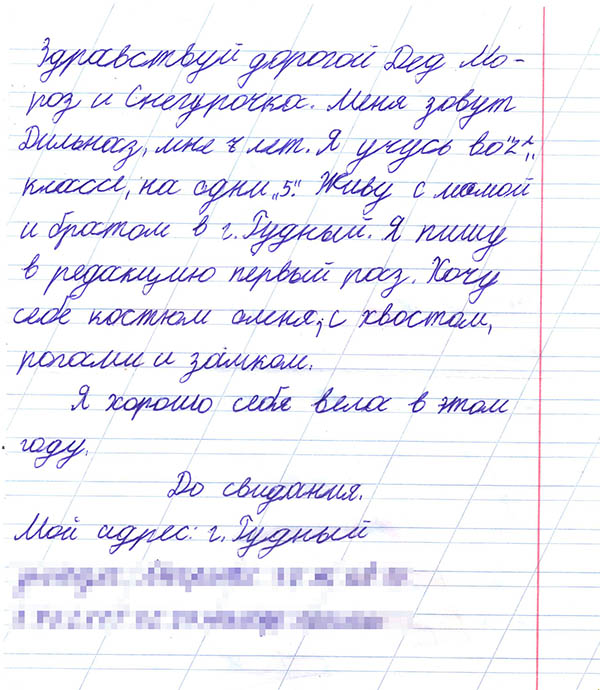 Здравствуй дорогой Дед Мо-
роз и Снегурочка. Меня зовут
Дильназ, мне 7 лет. Я учусь во "2"
классе, на одни "5". Живу с мамой
и братом в г. Рудный. Я пишу
в редакцию первый раз. Хочу
себе костюм оленя, с хвостом,
рогами и замком.
Я хорошо себя вела в этом
году.
До свидания.
Мой адрес: г. Рудный